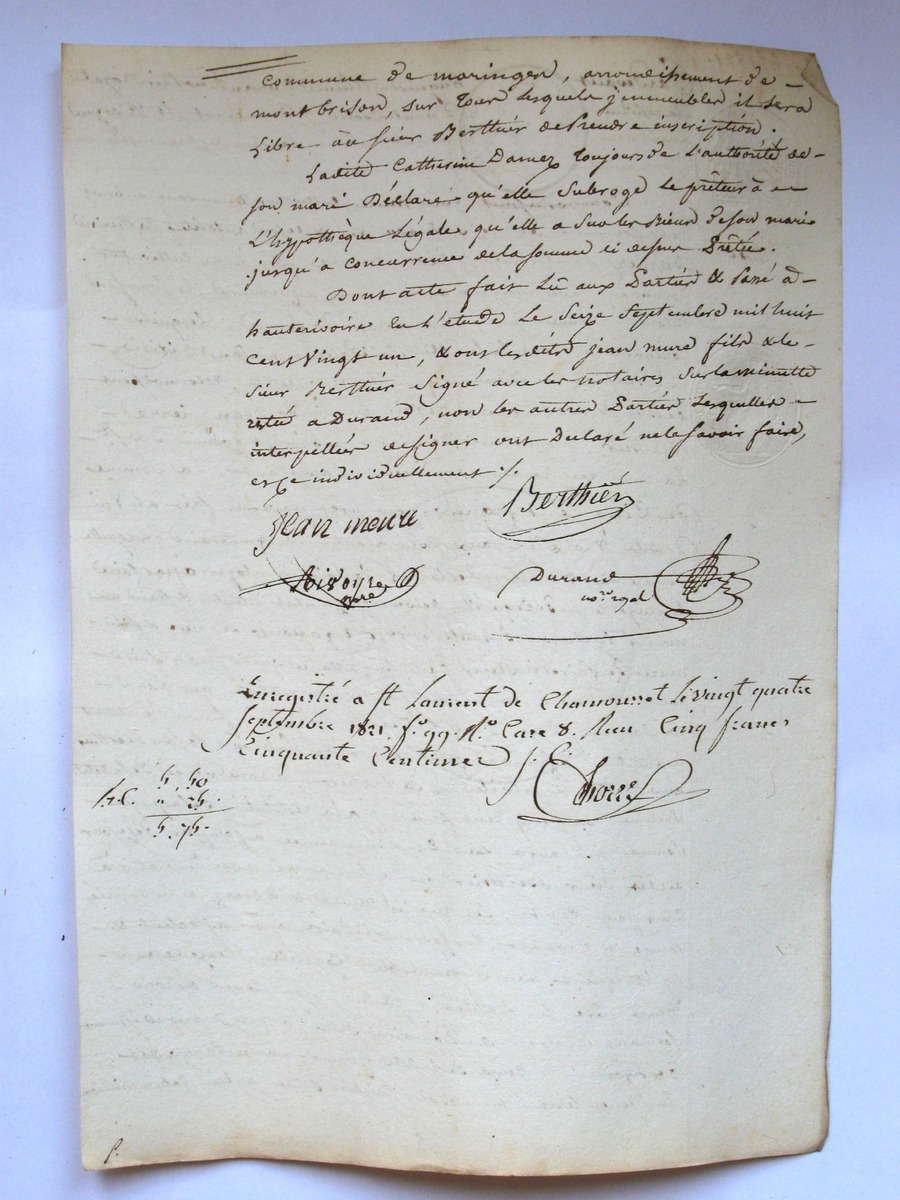 commune de maringes, arrondissement de
montbrison, sur tous lesquels immeubles il sera
Libre au sieur Berthier de Prendre inscription.
Ladite Catherine Damez toujours de L'authorité de
son mari Déclare qu'elle Subroge Le prêteur à
L'hypothèque Légale qu'elle a Sur les Biens de son mari
jusqu'à concurrence de la somme ci dessus Prêtée.
Dont acte fait Lû aux Parties & Passé à
hauterivoire En L'étude Le Seize Septembre mil huit
cent Vingt un, & ont lesdits jean mure fils & le
Sieur Berthier Signé avec les notaires Sur la minutte
restée a Durand, non les autres Parties Lesquelles
interpellées de signer ont Déclaré ne le Savoir faire,
et ce individuellement ./.
Jean meure
Berthier
Durand
no.re royal
Enregistré a St Laurent de Chamousset Le vingt quatre
Septembre 1821 f.o 99. R.o Case 8. Reçu Cinq francs
Cinquante Centimes
5. 50
" 25.
5. 75.